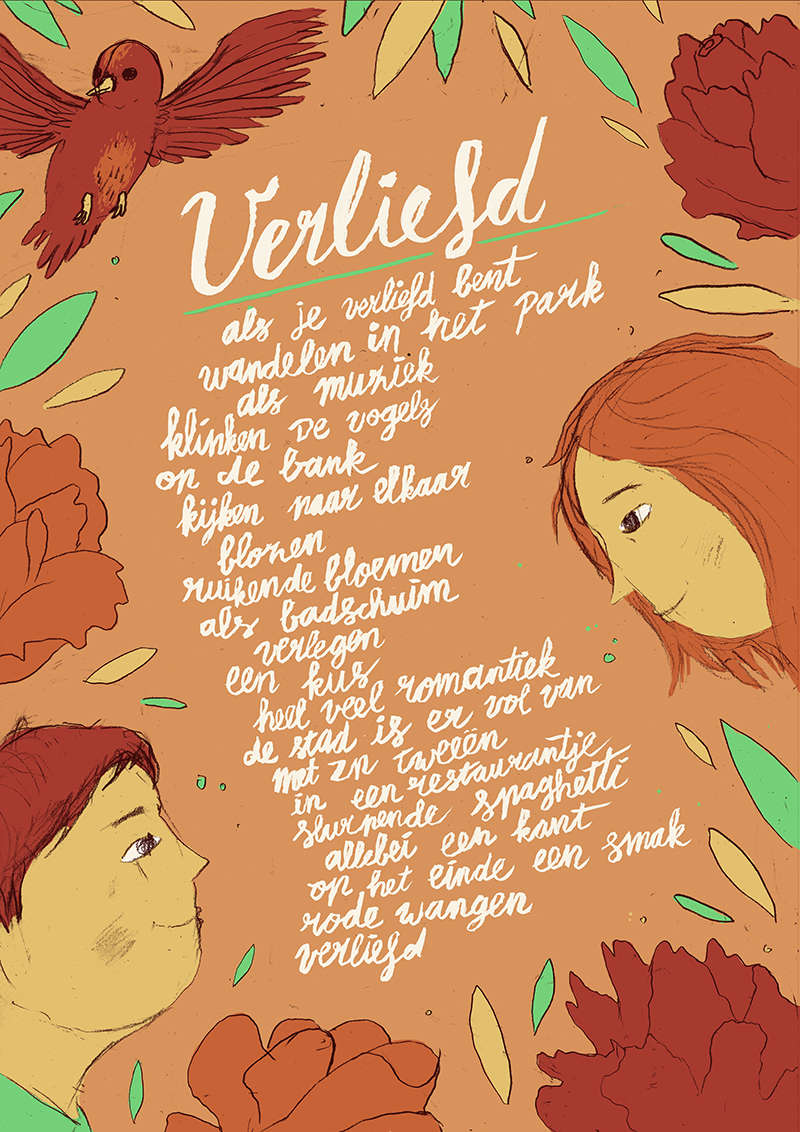 Verliefd
als je verliefd bent
wandelen in het park
als muziek
klinken de vogels
op de bank
kijken naar elkaar
blozen
ruikende bloemen
als badschuim
verlegen
een kus
heel veel romantiek
de stad is er vol van
met zn tweeën
in een restaurantje
slurpende spaghetti
allebei een kant
op het einde een smak
rode wangen
verliefd